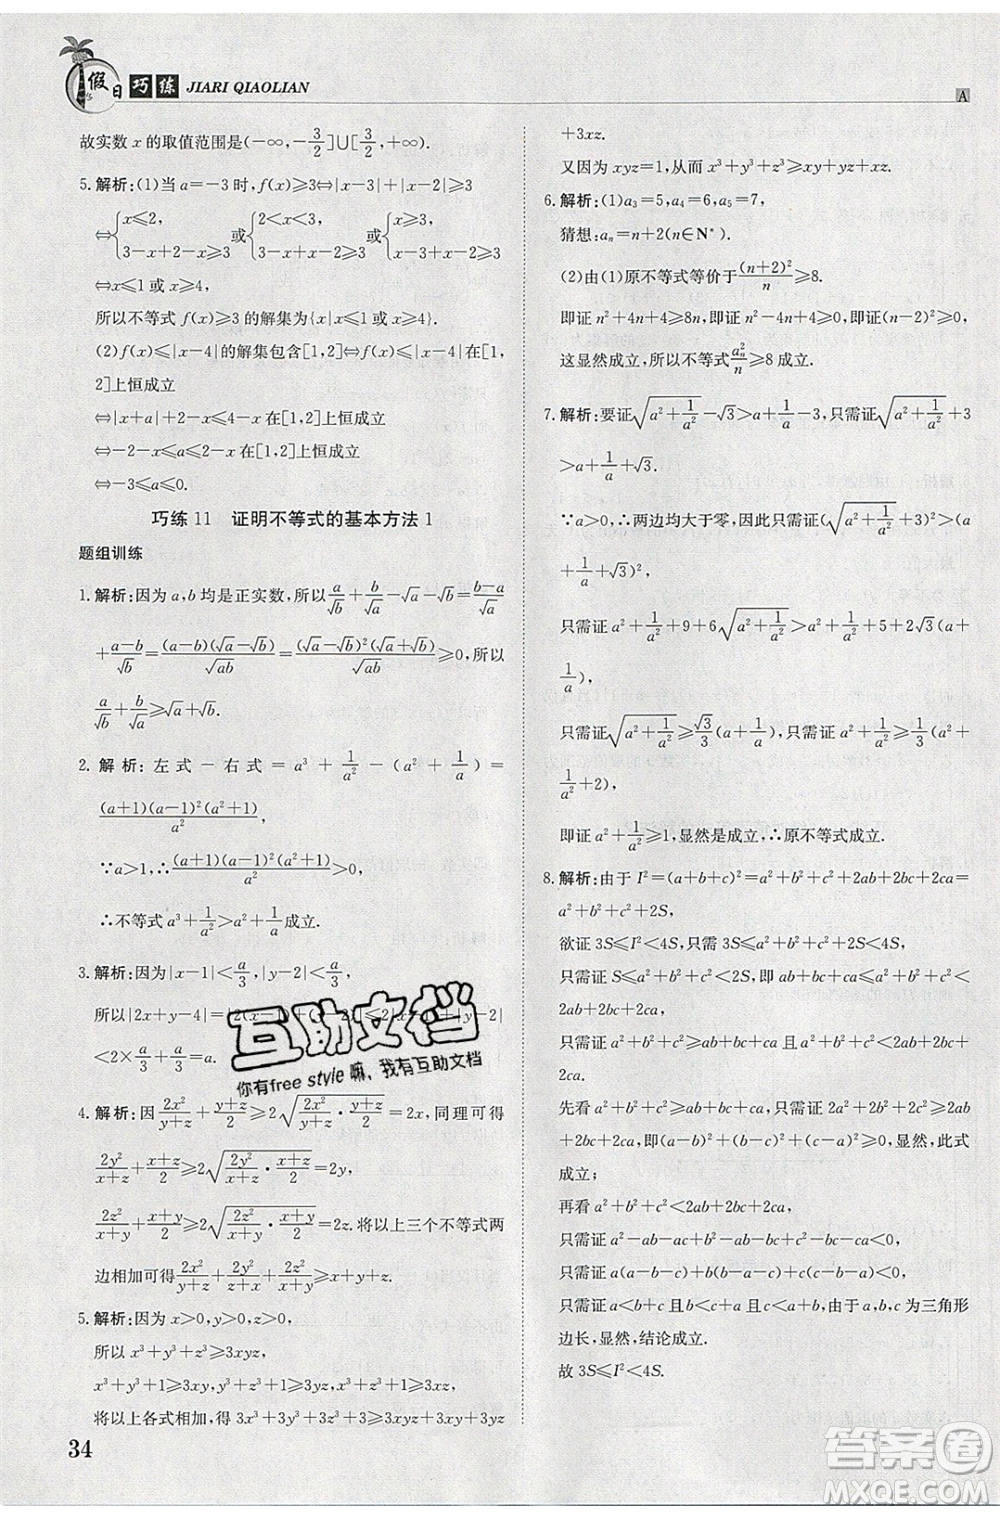 假日巧练 JIARI QIAOLIAN
A
故实数 x 的取值范围是(-∞,-3/2]∪[3/2,+∞).
5.解析:(1)当 a=-3 时,f(x)≥3⇔|x-3|+|x-2|≥3
⇔{x≤2, 3-x+2-x≥3 或{2<x<3, 3-x+x-2≥3 或{x≥3, x-3+x-2≥3
⇔x≤1 或 x≥4.
所以不等式 f(x)≥3 的解集为{x|x≤1 或 x≥4}.
(2)f(x)≤|x-4|的解集包含[1,2]⇔f(x)≤|x-4|在[1,
2]上恒成立
⇔|x+a|+2-x≤4-x 在[1,2]上恒成立
⇔-2-x≤a≤2-x 在[1,2]上恒成立
⇔-3≤a≤0.
巧练 11 证明不等式的基本方法 1
题组训练
1.解析:因为 a,b 均是正实数,所以 a/√b+b/√a-√a-√b=(b-a)/√a
+(a-b)/√b=(a-b)(√a-√b)/√(ab)=(√a-√b)²(√a+√b)/√(ab)≥0,所以
a/√b+b/√a≥√a+√b.
2.解析:左式-右式=a³+1/a²-(a²+1/a)=
(a+1)(a-1)(a²-1)/a².
∵a>1,∴(a+1)(a-1)(a²-1)/a²>0,
∴不等式 a³+1/a²>a²+1/a成立.
3.解析:因为|x-1|<a/3,|y-2|<a/3,
所以|2x+y-4|=|2(x-1)+(y-2)|≤2|x-1|+|y-2|
<2×a/3+a/3=a.
4.解析:因 2x²/(y+z)+(y+z)/2≥2√(2x²/(y+z)·(y+z)/2)=2x,同理可得
2y²/(x+z)+(x+z)/2≥2√(2y²/(x+z)·(x+z)/2)=2y,
2z²/(x+y)+(x+y)/2≥2√(2z²/(x+y)·(x+y)/2)=2z.将以上三个不等式两
边相加可得 2x²/(y+z)+2y²/(x+z)+2z²/(x+y)≥x+y+z.
5.解析:因为 x>0,y>0,z>0,
所以 x³+y³+z³≥3xyz,
x³+y³+1≥3xy,y³+z³+1≥3yz,x³+z³+1≥3xz,
将以上各式相加,得 3x³+3y³+3z³+3≥3xyz+3xy+3yz
34
+3xz.
又因为 xyz=1,从而 x³+y³+z³≥xy+yz+xz.
6.解析:(1)a₃=5,a₄=6,a₅=7,
猜想:aₙ=n+2(n∈N*).
(2)由(1)原不等式等价于(n+2)²/n≥8.
即证 n²+4n+4≥8n,即证 n²-4n+4=(n-2)²≥0.
这显然成立,所以不等式 aₙ²/n≥8 成立.
7.解析:要证√(a²+1/a²)-√3>a+1/a-3,只需证√(a²+1/a²)+3
>a+1/a+√3.
∵a>0,∴两边均大于零,因此只需证(√(a²+1/a²)+3)²>(a
+1/a+√3)²,
只需证 a²+1/a²+9+6√(a²+1/a²)>a²+1/a²+5+2√3(a+
1/a),
只需证√(a²+1/a²)≥√3/3(a+1/a),只需证 a²+1/a²≥1/3(a²+1/a²
+2),
即证 a²+1/a²≥1,显然是成立,∴原不等式成立.
8.解析:由于 I²=(a+b+c)²=a²+b²+c²+2ab+2bc+2ca
=a²+b²+c²+2S,
欲证 3S≤I²<4S,只需 3S≤a²+b²+c²+2S<4S,
只需证 S≤a²+b²+c²<2S,即 ab+bc+ca≤a²+b²+c²
<2ab+2bc+2ca.
只需证 a²+b²+c²≥ab+bc+ca 且 a²+b²+c²<2ab+2bc
+2ca.
先看 a²+b²+c²≥ab+bc+ca,只需证 2a²+2b²+2c²≥2ab
+2bc+2ca,即(a-b)²+(a-c)²+(b-c)²≥0,显然,此式
成立;
再看 a²+b²+c²<2ab+2bc+2ca,
只需证 a²-ab-ac+b²-ab-bc+c²-bc-ca<0,
只需证 a(a-b-c)+b(b-a-c)+c(c-b-a)<0,
只需证 a<b+c 且 b<c+a 且 c<b+a,由于 a,b,c 为三角形
边长,显然,结论成立.
故 3S≤I²<4S.
互助文档
你有free style嘛,我有互助文档
答案卷
MXQE.COM